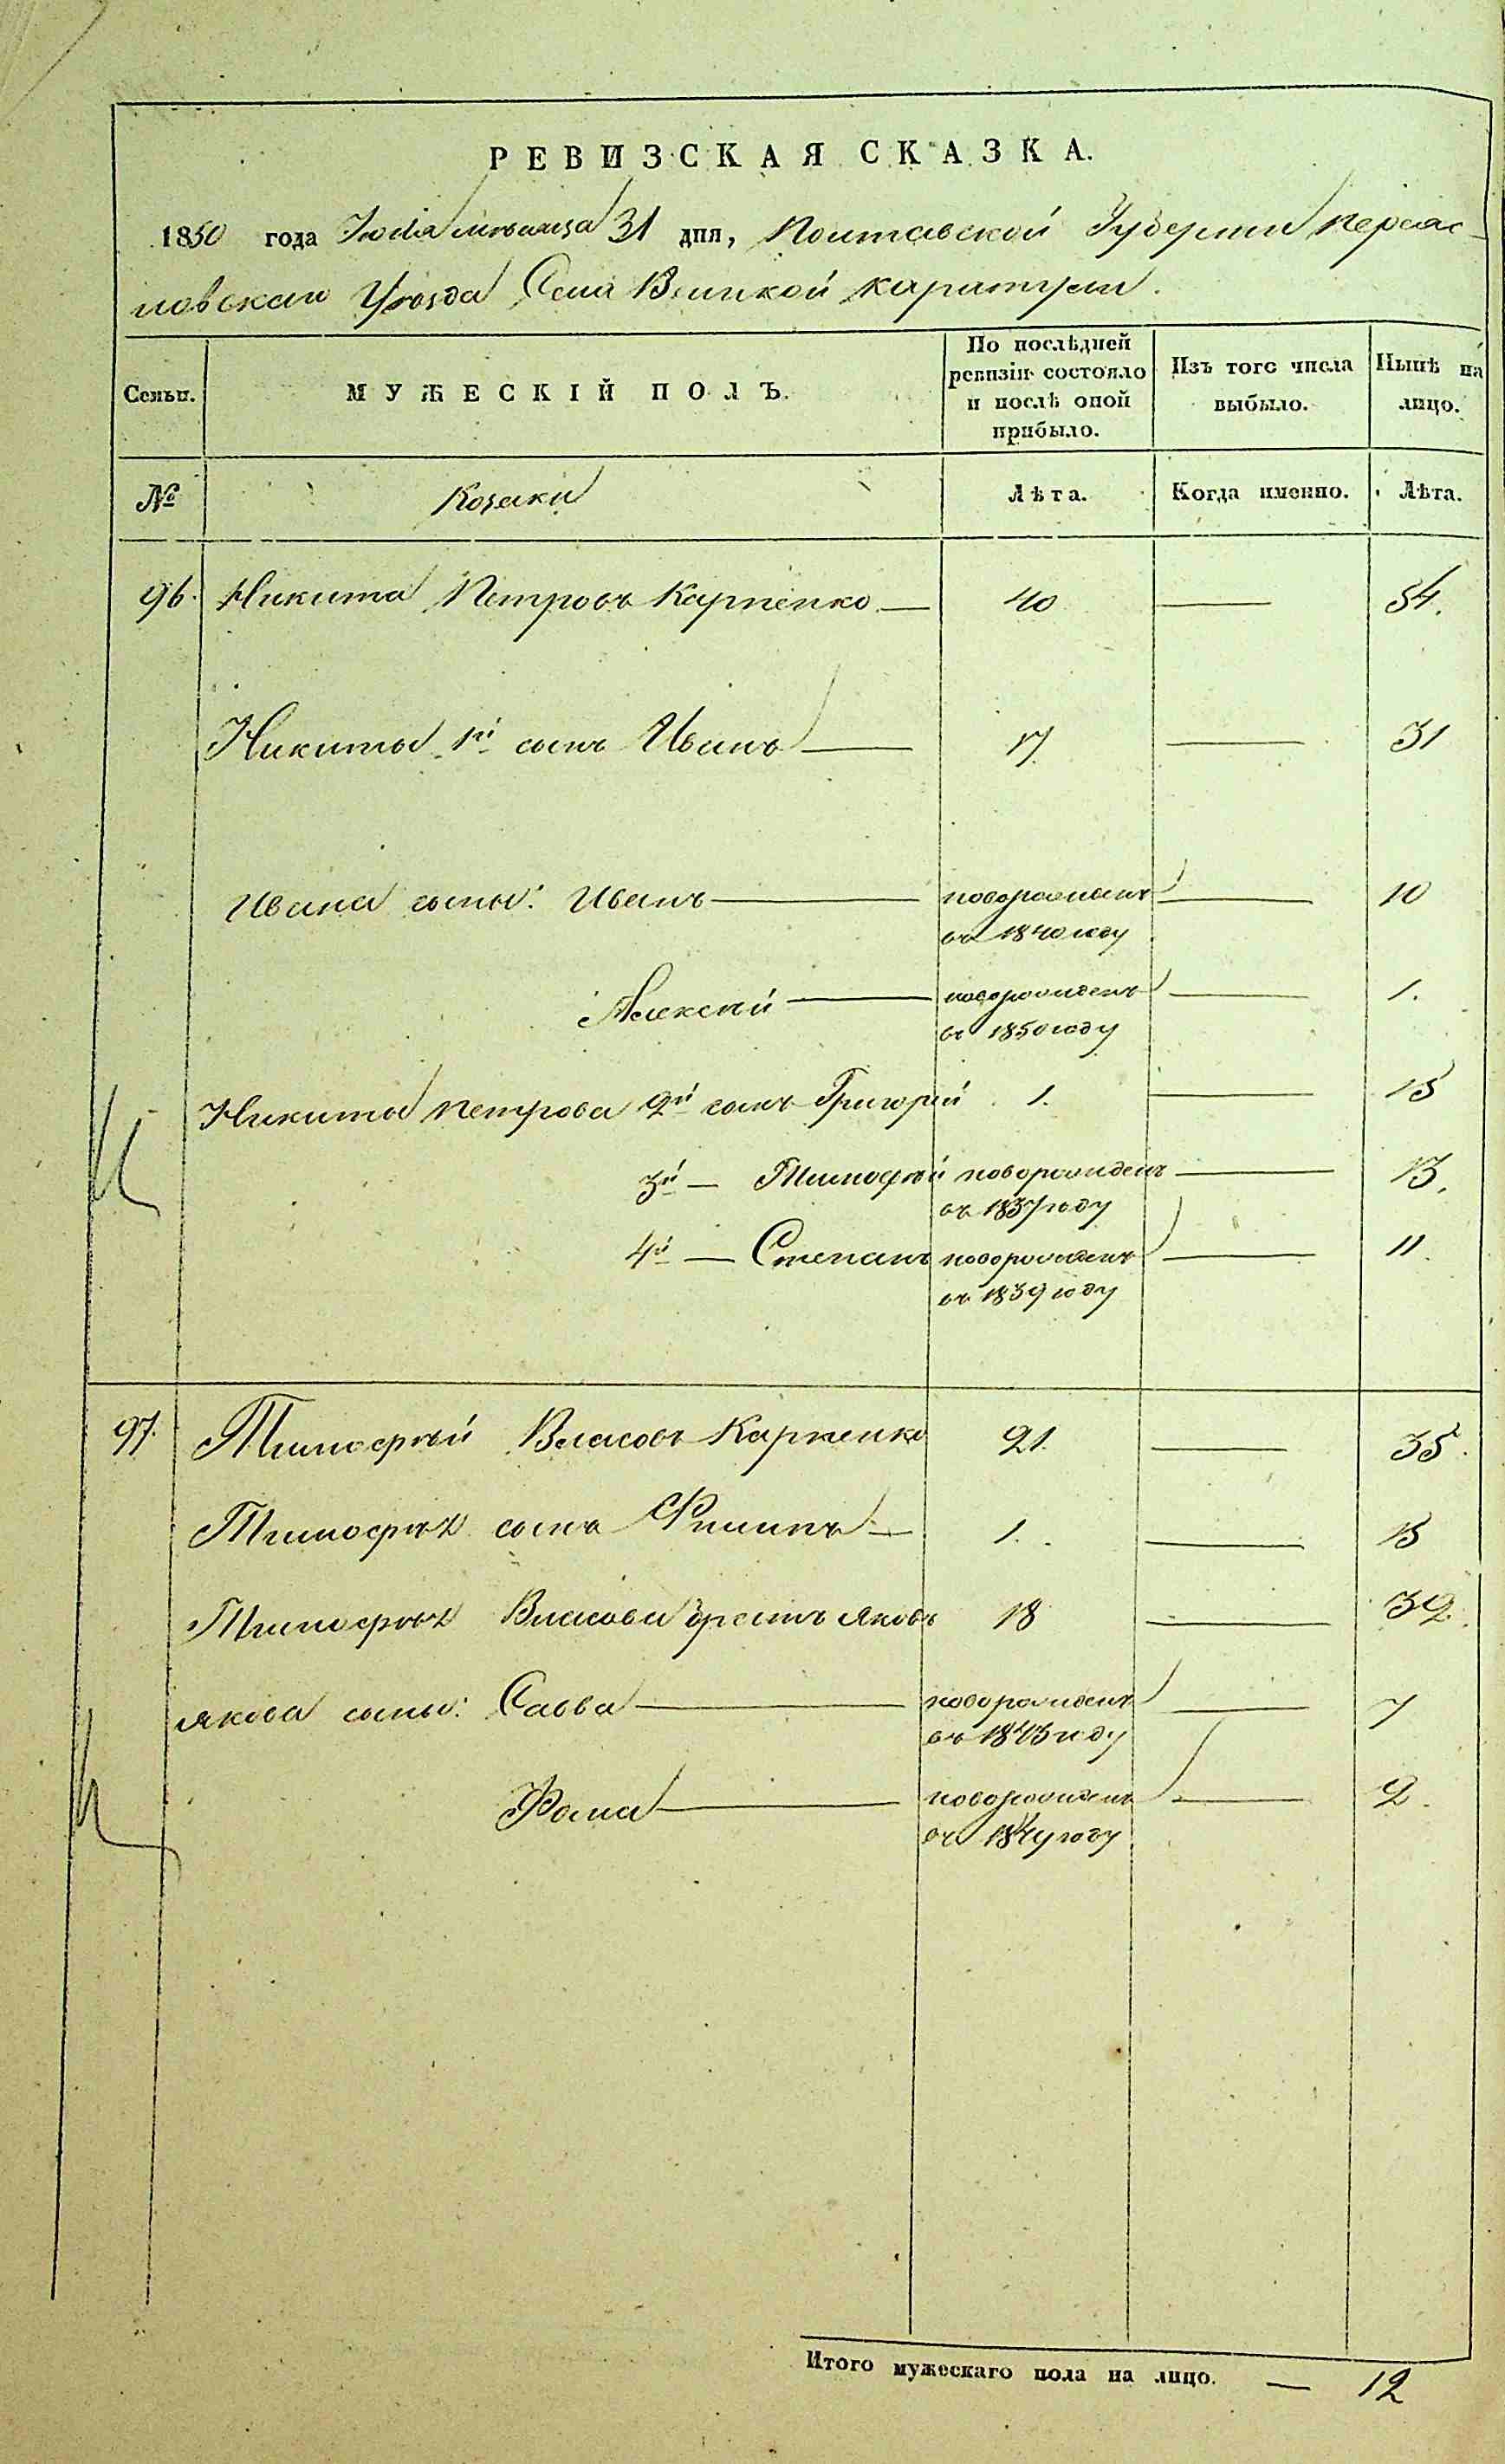 РЕВИЗСКАЯ СКАЗКА.
1850 года Іюля мѣсяца 31 дня, Полтавской Губерніи Переяс-
ловскаго Уѣзда Села Великой Каратули.
Семьи.
МУЖЕСКІЙ ПОЛЪ.
По послѣдней ревизіи состояло и послѣ оной прибыло.
Изъ того числа выбыло.
Нынѣ на лицо.
№
Козаки
Лѣта.
Когда именно.
Лѣта.
96. Никита Петровъ Карпенко — 40 — 54.
Никиты 1й сынъ Иванъ — 17. — 31
Ивана сыны: Иванъ — новорожденъ — 10
въ 1840 году
Алексѣй — новорожденъ — 1.
въ 1850 году
Никиты Петрова 2й сынъ Григорій 1. — 15
3й — Тимофѣй новорожденъ — 13.
въ 1837 году
4й — Степанъ новорожденъ — 11.
въ 1839 году
97. Тимофѣй Власовъ Карпенко 21. — 35.
Тимофѣя сынъ Филипъ — 1. — 15
Тимофѣя Власова братъ Яковъ 18 — 32.
Якова сыны: Савва — новорожденъ — 7
въ 1843 году
Фома — новорожденъ — 2.
въ 1849 году
Итого мужескаго пола на лицо. — 12